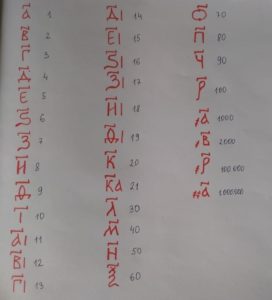 а҃ 1
в҃ 2
г҃ 3
д҃ 4
є҃ 5
ѕ҃ 6
з҃ 7
и҃ 8
ѳ҃ 9
і҃ 10
а҃і 11
в҃і 12
г҃і 13
д҃і 14
є҃і 15
ѕ҃і 16
з҃і 17
и҃і 18
ѳ҃і 19
к҃ 20
к҃а 21
л҃ 30
м҃ 40
н҃ 50
ѯ҃ 60
о҃ 70
п҃ 80
ч҃ 90
р҃ 100
҂а҃ 1000
҂в҃ 2000
҂р҃ 100.000
҂҂а҃ 1.000.000